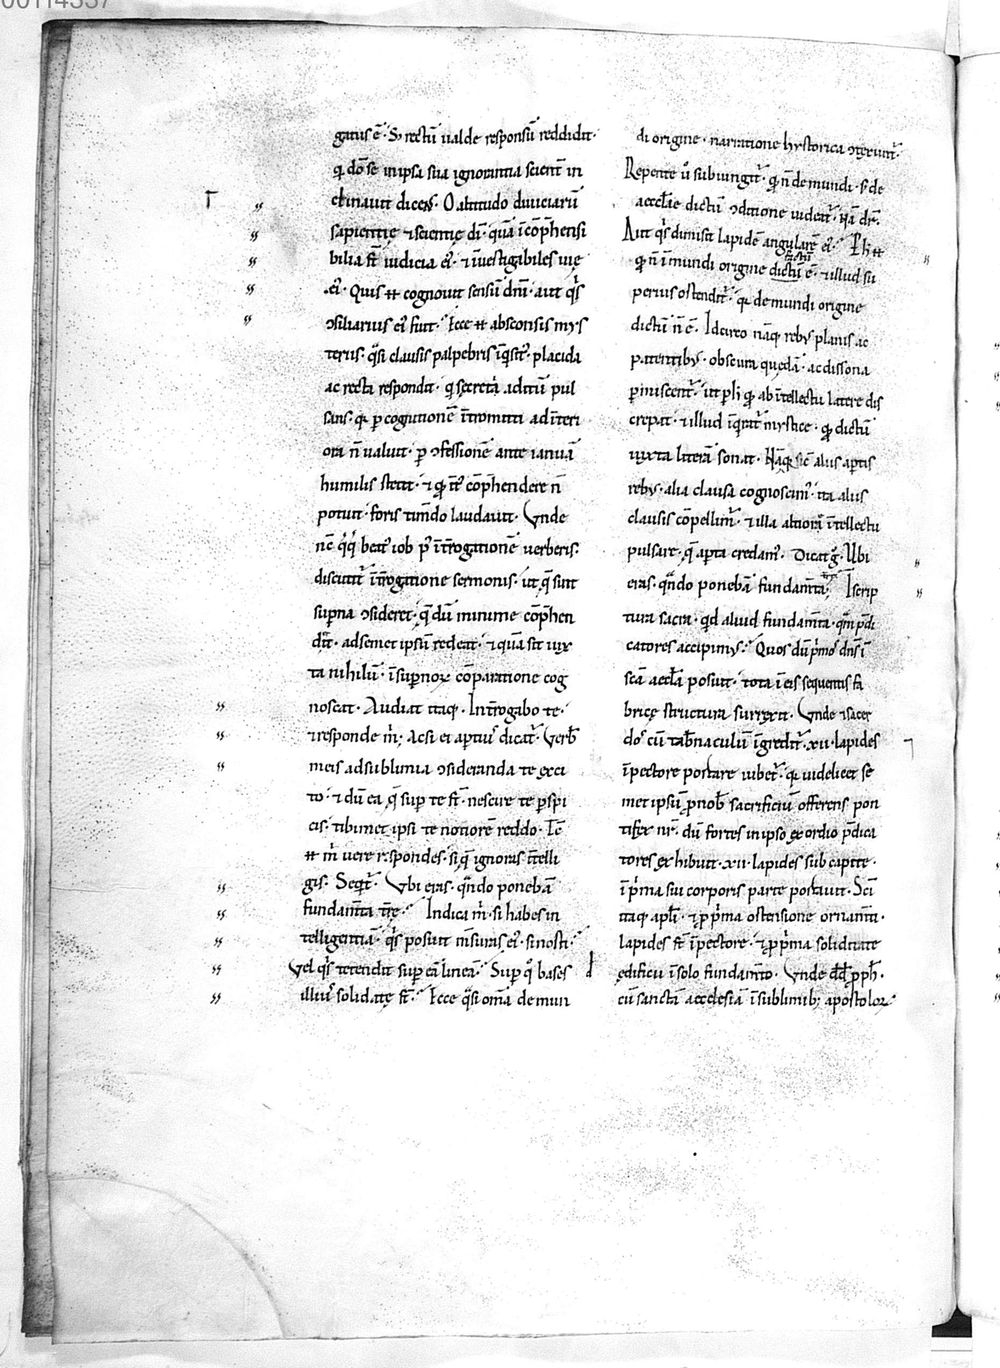 00114337
gatus ē· S; rectū ualde responsū reddidit·
qi dō se in ipsa sua ignorantia scient̄ in
clinauit dicens· O altitudo diuiciarū
sapientię ⁊ scientię dī· quā īcōp̄hensi
bilia st̄ iudicia ei᾽· ⁊ īuestigabiles uię
ei᾽· Quis ħ cognouit sensū dn̄i· aut q̇s
ↄsiliarius ei᾽ fuit· Ecce ħ absconsis mys
teriis· q̄si clausis palpebris īq̇sit᾽· placida
ac recta respondit· q secretā aditū pul
sans· qi p cognitionē ītromitti ad īteri
ora n̄ ualuit· p ↄfessionē ante ianuā
humilis stetit· ⁊ qđ īt᾽ cōp̄hendere n̄
potuit· foris timdo laudauit· Vnde
nc̄ q̇q̇ beat᾽ iob p᾽ īt̄rogationē uerberis·
discutit᾽ īt̄rogatione sermonis· ut q̄ sunt
sup̄na ↄsideret· q̄ dū minime cōp̄hen
dit̄· ad semet ipsū redeat· ⁊ quā sit iux
ta nihilū· ī sup̄noꝝ cōparatione cog
noscat· Audiat itaq· Int̄rogabo te·
⁊ responde m̄; Ac si ei apti᾽ dicat᾽· Verb̄
meis ad sublimia ↄsideranda te exci
to· ⁊ dū ea q̄ sup te st̄· nescire te p̄spi
cis· tibimet ipsi te notiorē reddo· Tc̄
ħ m̄ uere respondes· si q̄ ignoras ītelli
gis· Seq̇t᾽· Vbi eras· qn̄do ponebā
fundam̄ta tr̄ę· Indica m̄· si habes in
telligentiā· q̇s posuit m̄suras ei᾽· si nosti·
Vel q̇s tetendit sup eā lineā· Sup q᾽ bases
illiu᾽ solidatę st̄· Ecce q̄si om̄a de mun
di origine· narratione hystorica ↄterunt᾽·
Repente ū subiungit᾽· qđ n̄ de mundi· s; de
aecclīe dictū ↄditione uideat᾽· Nā dr̄·
Aut q̇s dimisit lapidē angularē ei᾽· Ph ħ
qđ n̄ ī mundi origine dictū ē· ⁊ illud su
perius ostendit᾽· qi de mundi origine
dictū n̄ ē· Idcirco nāq reb; planis ac
patentib;· obscura quędā· ac dissona
p̄miscent᾽· ut p h qđ ab ītellectu latere dis
crepat· ⁊ illud īq̇rat᾽ mystice· qđ dictū
iuxta litterā sonat· Nāq; sic̄ aliis aptis
reb;· alia clausa cognoscim᾽· ita aliis
clausis cōpellim᾽· ⁊ illa altiori ītellectu
pulsare· q̄ apta credam᾽· Dicat g· Vbi
eras· qn̄do ponebā fundam̄ta· I scrip
tura sacra· qid aliud fundam̄ta· qm̄ p̄di
catores accipim;· Quos dū p̄mo᾽ dn̄s ī
scā aeccl̄a posuit· tota ī eis sequentis fa
bricę structura surrexit· Vnde ⁊ sacer
do᾽ cū tab̄naculū īgredit᾽· xii· lapides
ī pectore portare iubet᾽· qi uidelicet se
met ipsū p nob̄ sacrificiū offerens pon
tifex nr̄· dū fortes in ipso exordio p̄dica
tores exhibuit· xii· lapides sub capite·
ī p̄ma sui corporis parte portauit· Sci
itaq apli· ⁊ p p̄ma ostensione ornam̄ta·
lapides st̄ ī pectore· ⁊ p p̄ma soliditate
ędificii ī solo fundam̄to· Vnde dđ p̄ph·
cū sanctā aecclesiā ī sublimib; apostoloꝝ